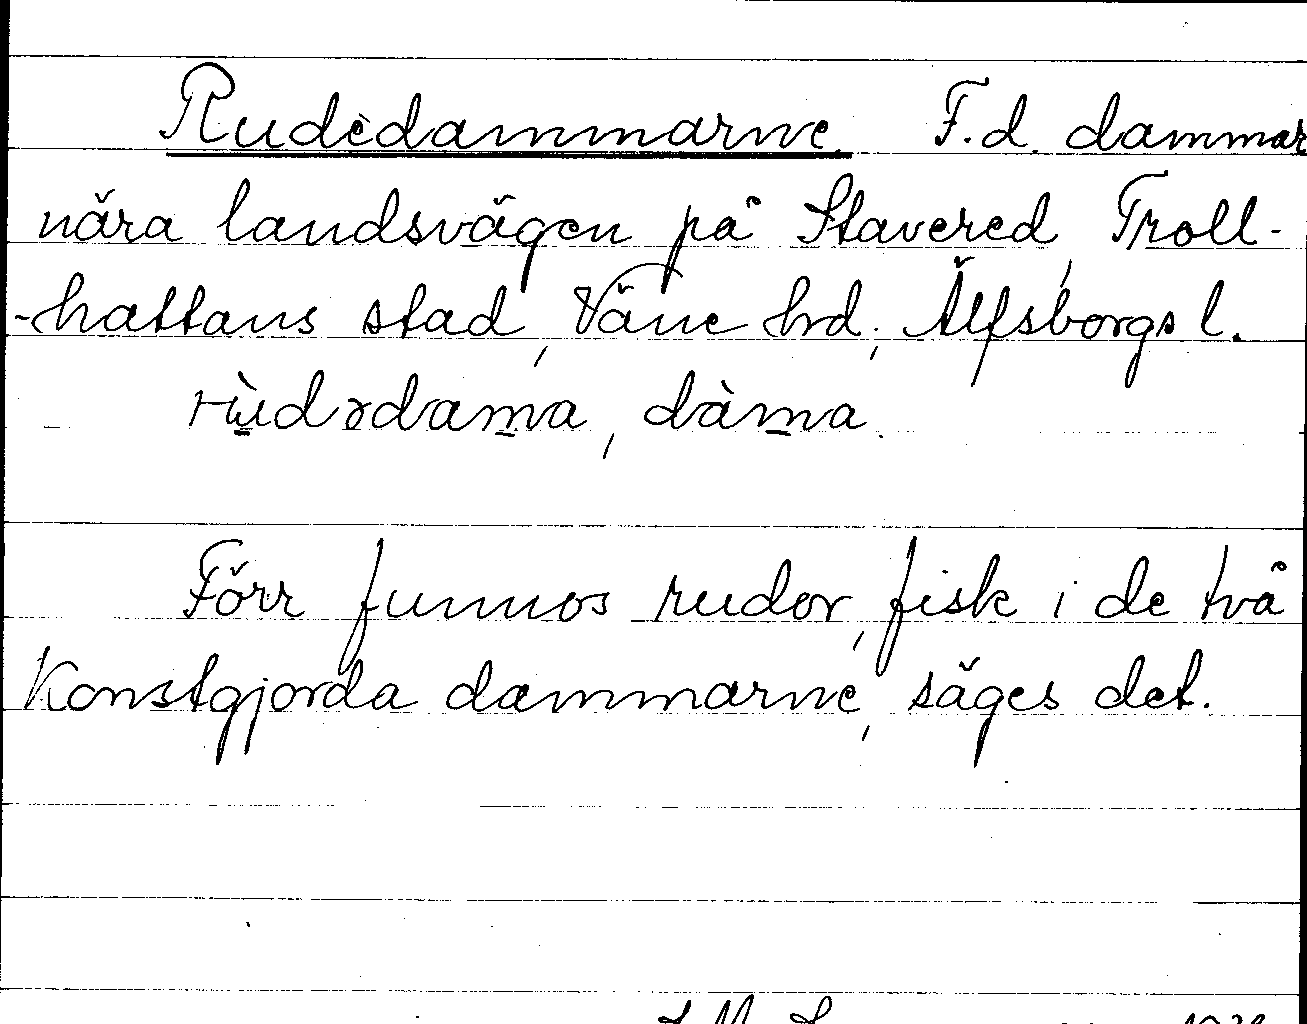 Rudedammarne. F.d. dammar
nära landsvägen på Stavered, Troll-
-hattans stad, Väne hrd, Älfsborgs l.
rùdədama, dàma.
Förr funnos rudor, fisk i de två
Konstgjorda dammarne, säges det.